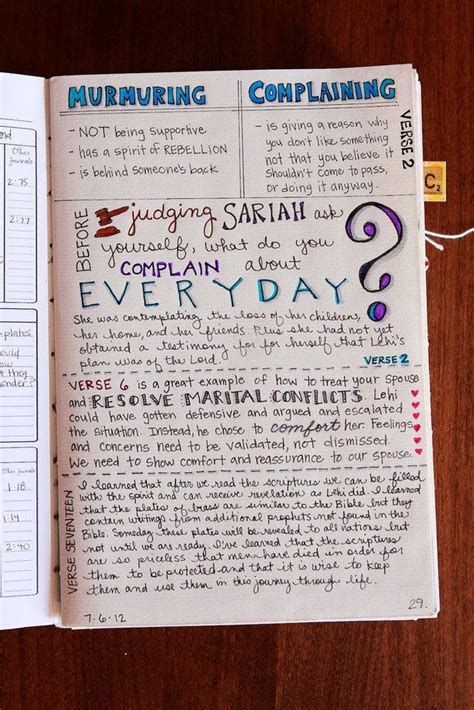 MURMURING
- NOT being supportive
- has a spirit of REBELLION
- is behind someone's back
COMPLAINING
- is giving a reason why
you don't like something
not that you believe it
shouldn't come to pass,
or doing it anyway.
VERSE 2
C2
BEFORE
judging SARIAH ask
yourself, what do you
COMPLAIN about
EVERYDAY
?
She was contemplating the loss of her children,
her home, and her friends. Plus she had not yet
obtained a testimony for for herself that Lehi's
plan was of the Lord.
VERSE 2
VERSE 6 is a great example of how to treat your spouse
and RESOLVE MARITAL CONFLICTS. Lehi
could have gotten defensive and argued and escalated
the situation. Instead, he chose to comfort her. Feelings
and concerns need to be validated, not dismissed.
We need to show comfort and reassurance to our spouse.
VERSE SEVENTEEN
I learned that after we read the scriptures we can be filled
with the spirit and can receive revelation as Lehi did. I learned
that the plates of brass are similar to the Bible but they
contain writings from additional prophets not found in the
Bible. Someday these plates will be revealed to all nations but
not until we are ready. I've learned that the scriptures
are so priceless that men have died in order for
them to be protected and that it is wise to keep
them and use them in this journey through life.
7-6-12
29.
Other
journals
2:75
2:77
Other
journals
1:18
1:14
2:40